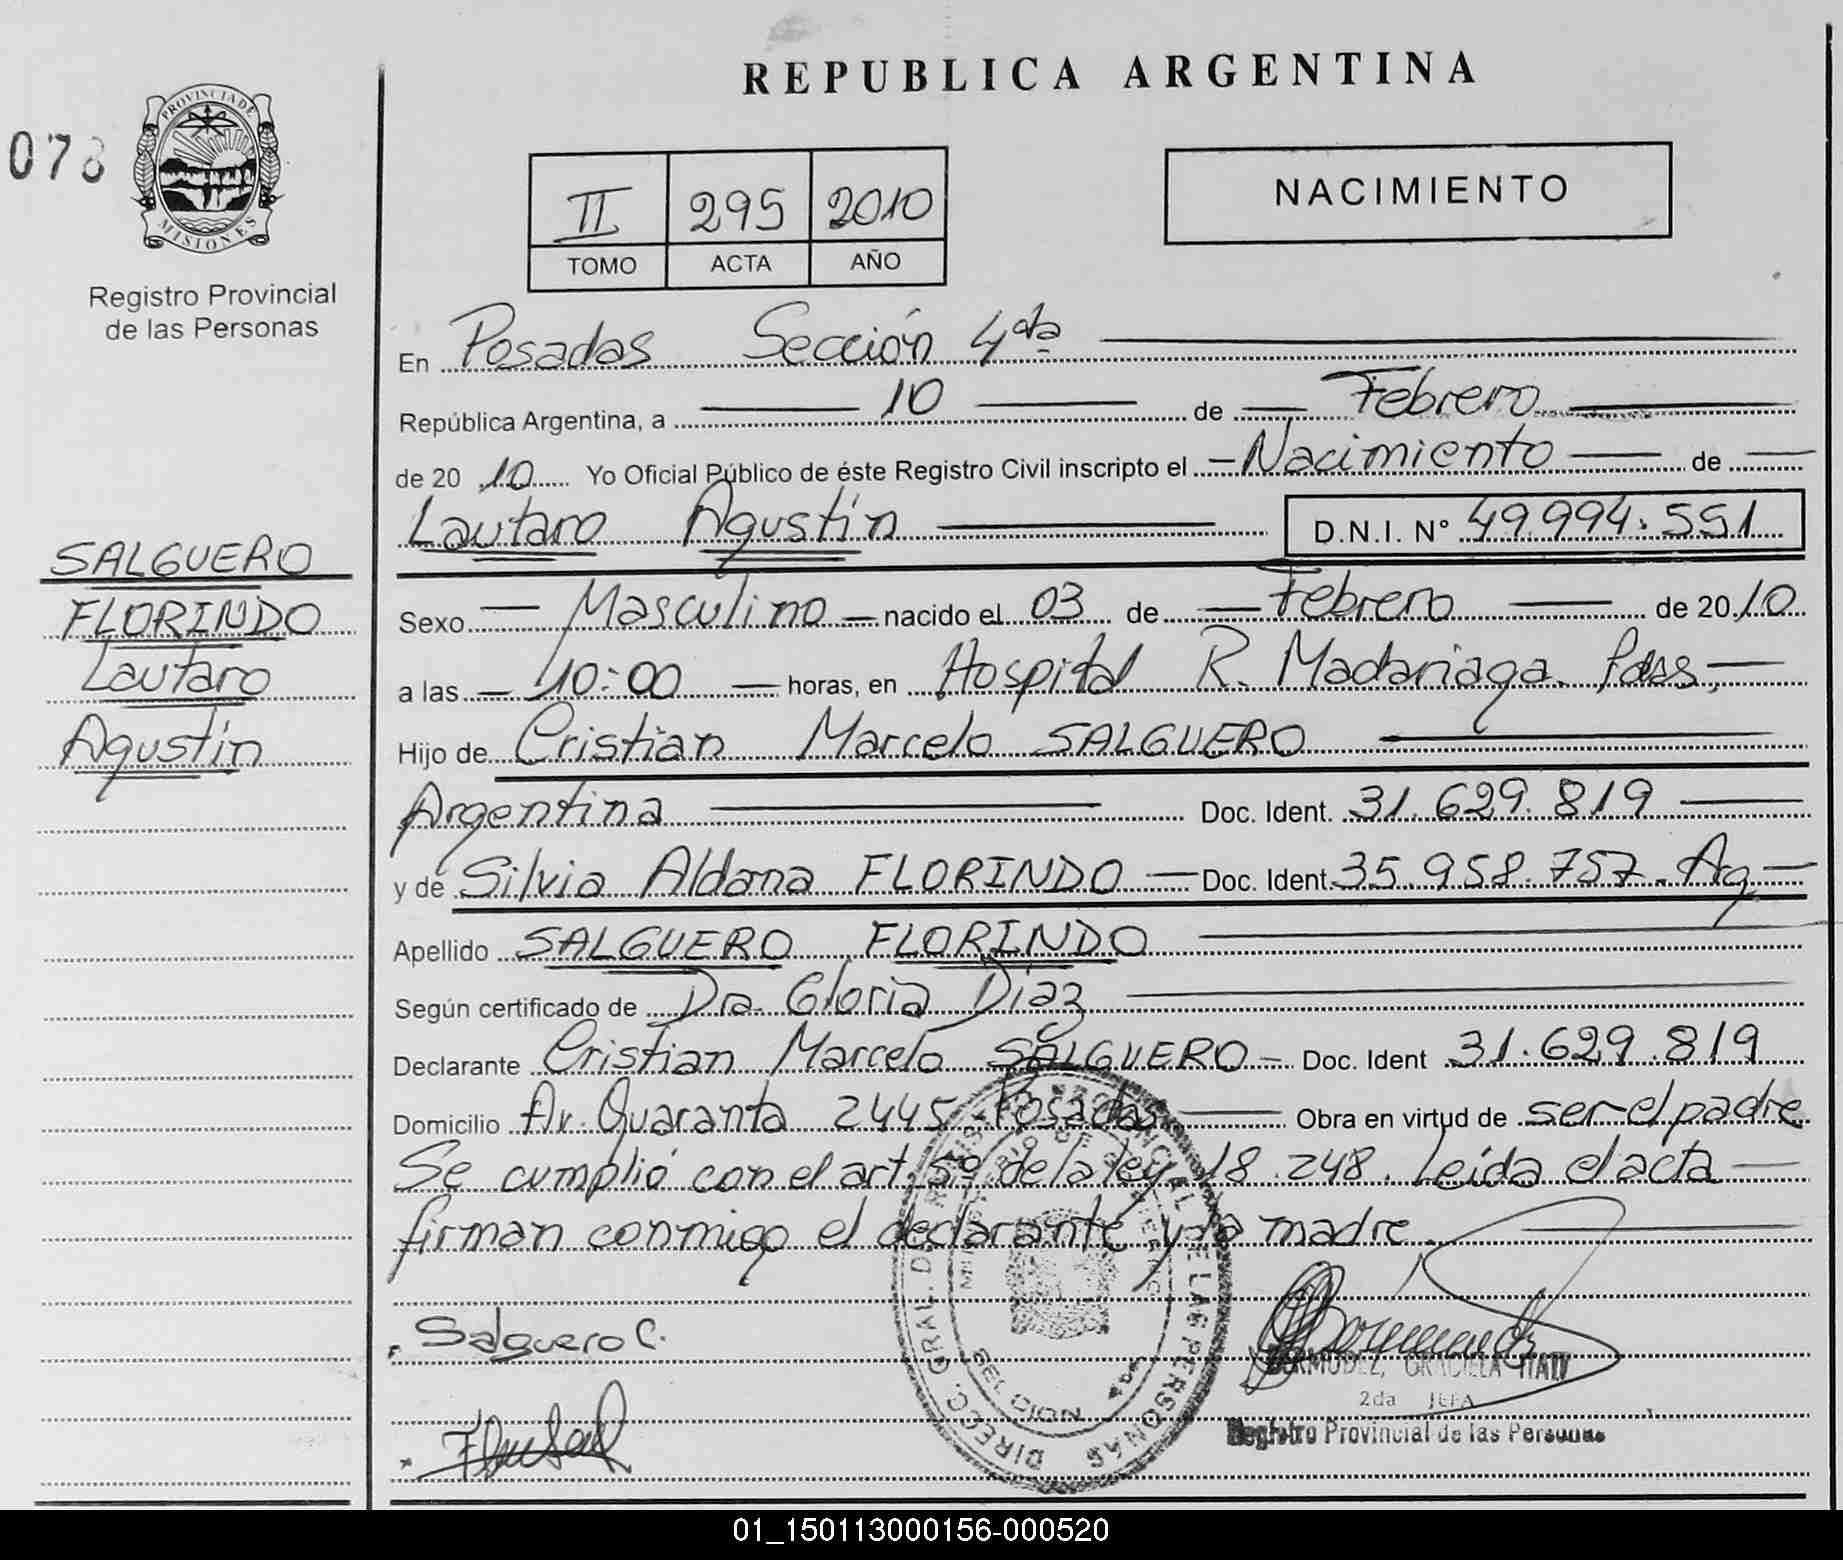 REPUBLICA ARGENTINA
078
PROVINCIA DE
MISIONES
Registro Provincial
de las Personas
NACIMIENTO
II 295 2010
TOMO ACTA AÑO
En Posadas Sección 4ta
República Argentina, a 10 de Febrero
de 20 10 Yo Oficial Público de éste Registro Civil inscripto el Nacimiento de
Lautaro Agustín D.N.I. Nº 49.994.551
SALGUERO
FLORINDO
Lautaro
Agustín
Sexo Masculino nacido el 03 de Febrero de 20 10
a las 10:00 horas, en Hospital R. Madariaga. Pdas,
Hijo de Cristian Marcelo SALGUERO
Argentina Doc. Ident. 31.629.819
y de Silvia Aldana FLORINDO Doc. Ident. 35.958.757. Ag
Apellido SALGUERO FLORINDO
Según certificado de Dra. Gloria Diaz
Declarante Cristian Marcelo SALGUERO Doc. Ident 31.629.819
Domicilio Av. Quaranta 2445 Posadas Obra en virtud de ser el padre
Se cumplió con el art. 5º de la ley 18.248. Leída el acta
firman conmigo el declarante y la madre.
Salguero C.
DIRECC. GRAL. DE REGISTRO PROVINCIAL DE LAS PERSONAS
BERMUDEZ, GRACIELA ITATI
2da JEFA
Registro Provincial de las Personas
01_150113000156-000520